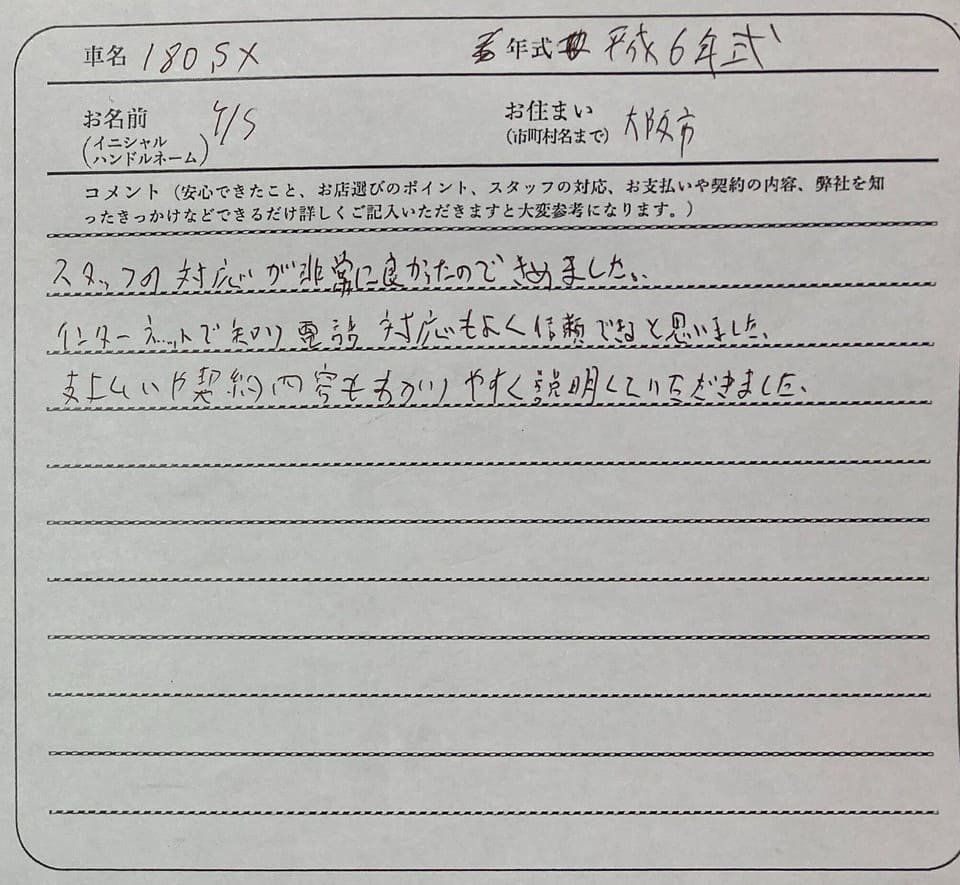 車名 180,SX 年式 平成6年式
お名前 (イニシャル ハンドルネーム) Y/S お住まい (市町村名まで) 大阪市
コメント（安心できたこと、お店選びのポイント、スタッフの対応、お支払いや契約の内容、弊社を知
ったきっかけなどできるだけ詳しくご記入いただきますと大変参考になります。）
スタッフの対応が非常に良かったのできめました。
インターネットで知り電話対応もよく信頼できると思いました。
支払いや契約内容もわかりやすく説明していただきました。